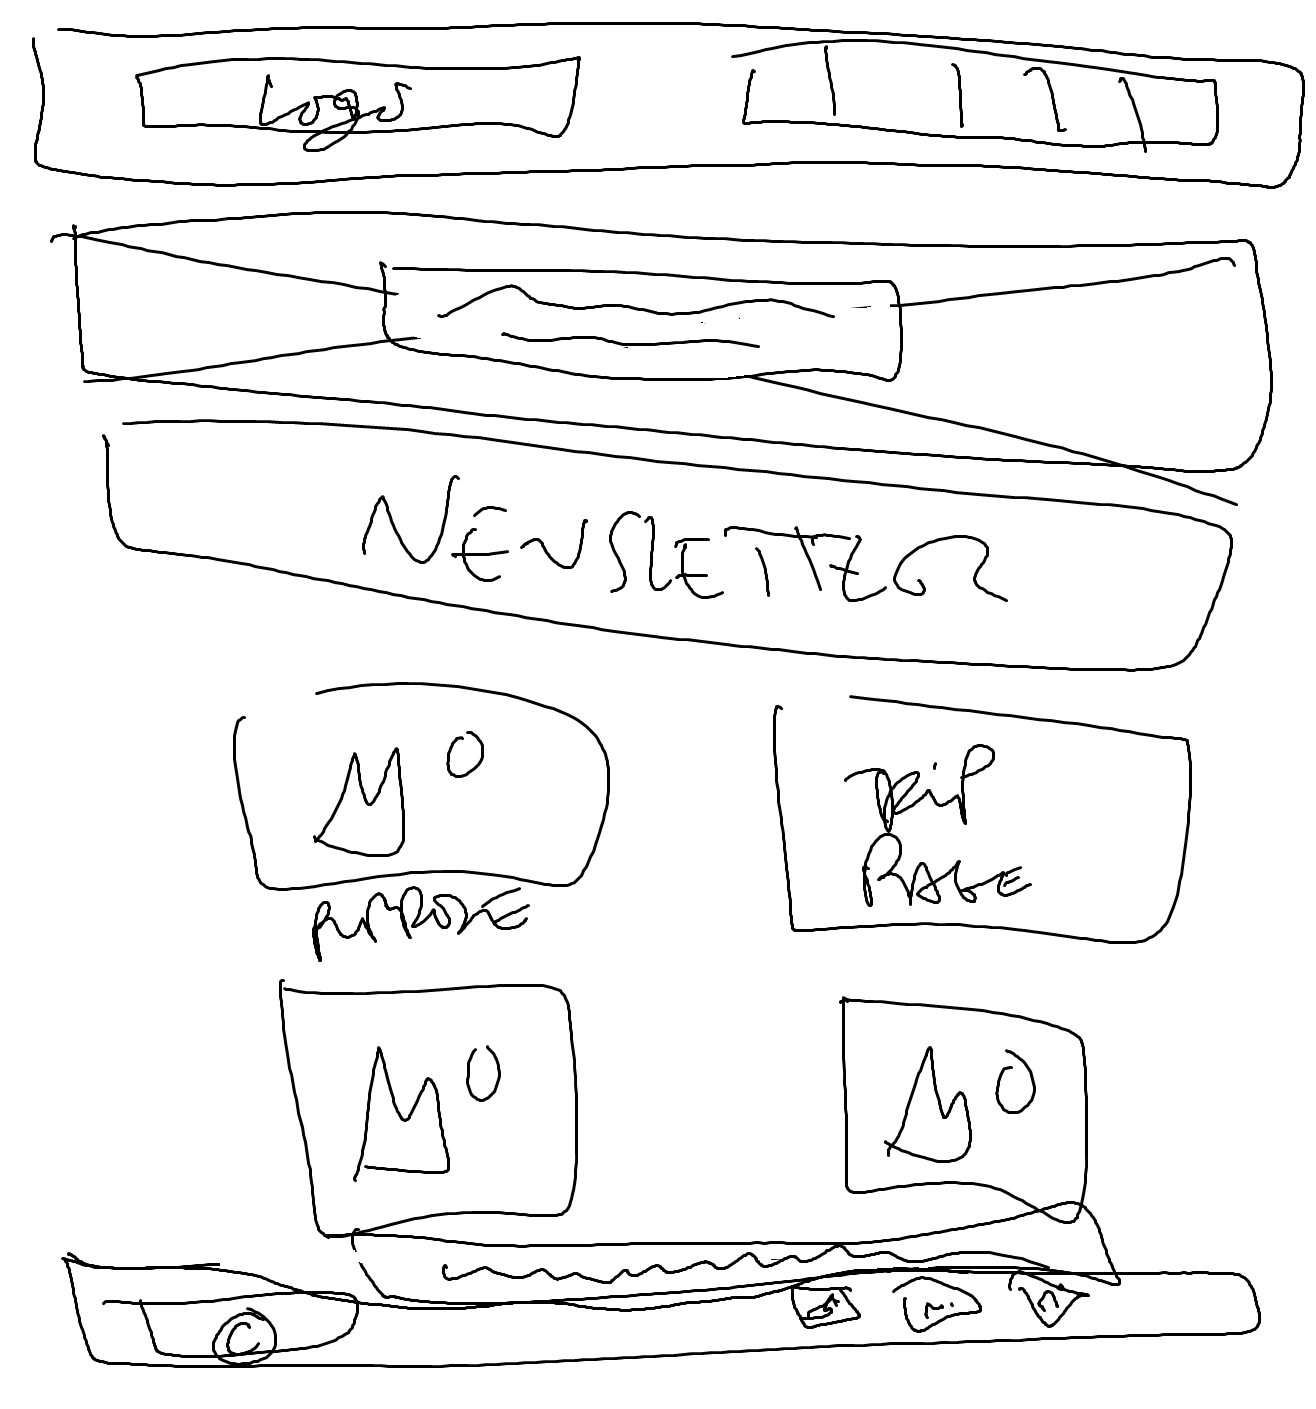 Logo
NEWSLETTER
PURPOSE
TRIP
RAGE
©